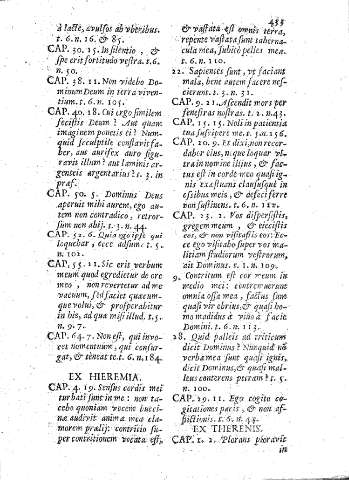 433
à lacte, avulsos ab uberibus.
t. 6. n. 26. & 85.
CAP. 30. 15. In silentio, &
spe erit fortitudo vestra. t. 6.
n. 50.
CAP. 38. 11. Non videbo Do-
minum Deum in terra viven-
tium. t. 6. n. 105.
CAP. 40. 18. Cui ergo similem
fecistis Deum? Aut quam
imaginem ponetis ei? Num-
quid sculptile conflavit fa-
ber, aut aurifex auro figu-
ravit illum? aut laminis ar-
genteis argentarius? t. 3. in
præf.
CAP. 50. 5. Dominus Deus
aperuit mihi aurem, ego au-
tem non contradico, retror-
sum non abij. t. 3. n. 44.
CAP. 52. 6. Quia ego ipse qui
loquebar, ecce adsum. t. 5.
n. 102.
CAP. 55. 11. Sic erit verbum
meum quod egredietur de ore
meo, non revertetur ad me
vacuum, sed faciet quæcum-
que volui, & prosperabitur
in his, ad quæ misi illud. t. 5.
n. 9. 7.
CAP. 64. 7. Non est, qui invo-
cet nomen tuum, qui consur-
gat, & teneat te. t. 6. n. 184.
EX HIEREMIA.
CAP. 4. 19. Sensus cordis mei
turbati sunt in me: non ta-
cebo quoniam vocem bucci-
næ audivit anima mea cla-
morem prælij: contritio su-
per contritionem vocata est,
& vastata est omnis terra,
repente vastata sunt taberna-
cula mea, subitò pelles meæ.
t. 6. n. 110.
22. Sapientes sunt, ut faciant
mala, bene autem facere nes-
cierunt. t. 3. n. 31.
CAP. 9. 21. Ascendit mors per
fenestras nostras. t. 2. n. 43.
CAP. 15. 15. Noli in patientia
tua suscipere me. t. 5. n. 156.
CAP. 20. 9. Et dixi, non recor-
dabor ejus, neque loquar ul-
tra in nomine illius, & fac-
tus est in corde meo quasi ig-
nis exæstuans claususque in
ossibus meis, & defeci ferre
non sustinens. t. 6. n. 112.
CAP. 23. 2. Vos dispersistis,
gregem meum, & ejecistis
eos, & non visitastis eos: Ec-
ce ego visitabo super vos ma-
litiam studiorum vestrorum,
ait Dominus. t. 1. n. 109.
9. Contritum est cor meum in
medio mei: contremuerunt
omnia ossa mea, factus sum
quasi vir ebrius, & quasi ho-
mo madidus à vino à facie
Domini. t. 6. n. 113.
28. Quid paleis ad triticum
dicit Dominus? Nunquid nõ
verba mea sunt quasi ignis,
dicit Dominus, & quasi mal-
leus conterens petram? t. 5.
n. 100.
CAP. 29. 11. Ego cogito co-
gitationes pacis, & non af-
flictionis. t. 6. n. 43.
EX THERENIS.
CAP. 1. 2. Plorans ploravit
in